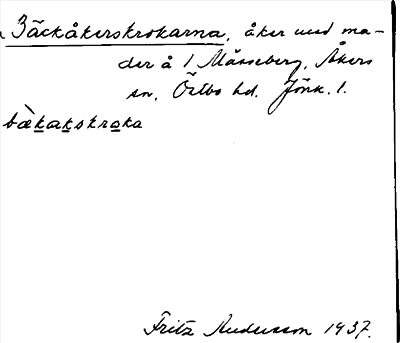 Bäckåkerskrokarna, åker med ma-
der å 1 Måsseberg, Åkers
sn, Östbo hd. Jönk. l.
bæ̀kakskroka
Fritz Andersson 1937.